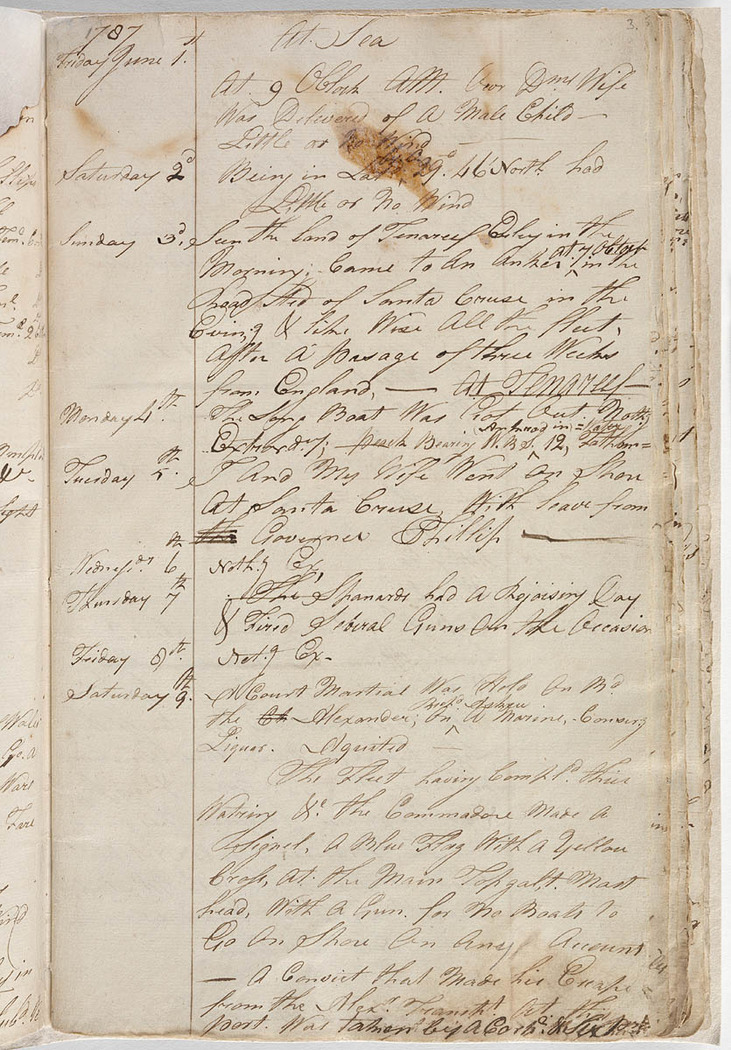 1787
At Sea
3.
Friday June 1.st
At 9 Oblock AM. Our Dmr Wife
Was Delivered of A Male Child —
Little or No Wind —
Saturday 2d
Being in Latt 29°. 46 North had
Little or No Wind
Sunday 3d.
Seen the land of Tenareef Erley in the
Morning; Came to An Anker at 7 Oblock in the
Road Sted of Santa Cruse in the
Evin,g & like Wise All the fleet,
After A pasage of three Weeks
from England, — At Tenareef —
Monday 4th.
The Long Boat Was Out, Noth,g
Extrord,y; Bearing W.B.S. 12, Fathom=
Tuesday 5th.
I And My Wife Went On Shore
At Santa Cruse, With leave from
Governer Phillip —
Wednesdy. 6th
Noth.g Ex,
Thursday 7th
The Spanards had A Rejoising Day
& Fired Several Guns On the Occasion
Friday 8th.
Not.g Ex-
Saturday 9.th
A Court Martial Was Held On Bd
the Alexander; On A Marine,
Liquor. Aquited —
The Fleet having Compl.d thier
Watring &c. the Commadore Made A
Signel, A Blue Flag With A Yellow
Cross, At the Main Topgalt. Mast
head, With A Gun. for No Boats to
Go On Shore On Any Account
— A Convict that Made his Escape
from the Alexr. Transpt. At this
port. Was taken by A Corp.l &